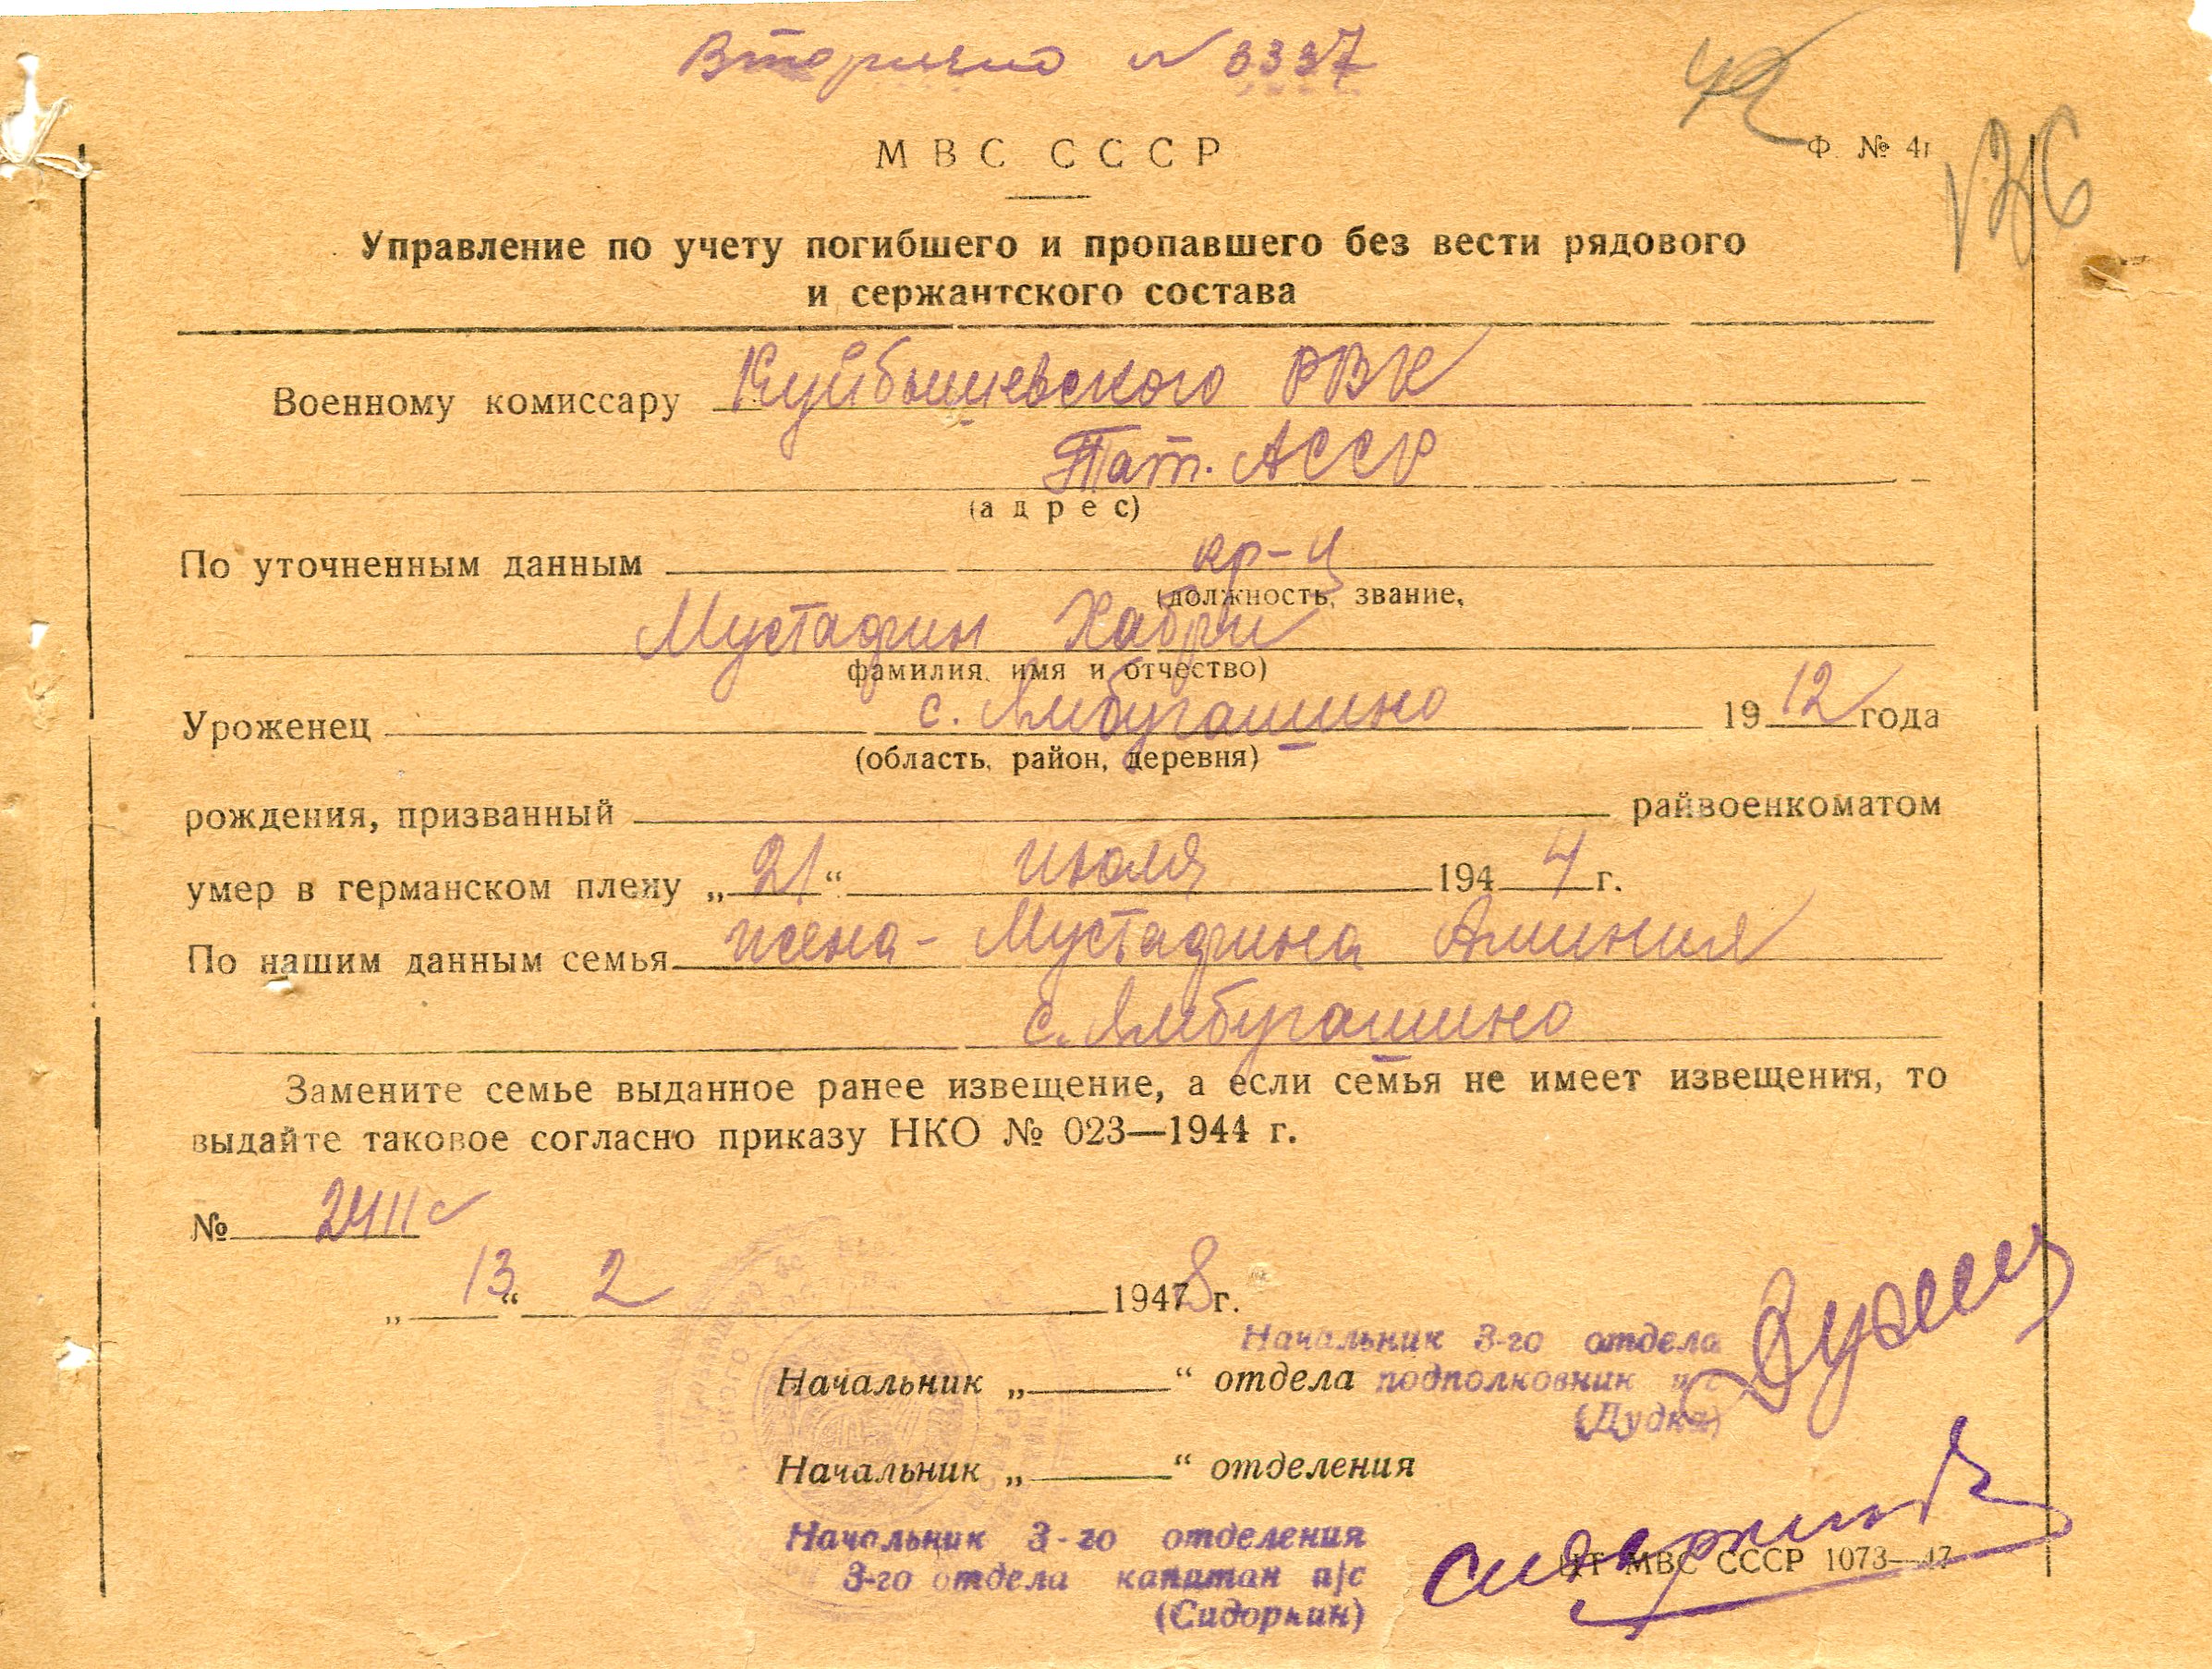 Вторично № 3337
42
МВС СССР
Ф. № 4г
Управление по учету погибшего и пропавшего без вести рядового
и сержантского состава
Военному комиссару Куйбышевского РВК
Тат. АССР
(адрес)
По уточненным данным кр-ц
(должность, звание,
Мустафин Хабри
фамилия, имя и отчество)
Уроженец с. Ямбугашино 1912 года
(область, район, деревня)
рождения, призванный райвоенкоматом
умер в германском плену „21“ июля 1944 г.
По нашим данным семья жена - Мустафина Аминия
с. Ямбугашино
Замените семье выданное ранее извещение, а если семья не имеет извещения, то
выдайте таковое согласно приказу НКО № 023—1944 г.
№ 2411с
„13“ 2 1948 г.
Начальник 3-го отдела
Начальник „ “ отдела подполковник и/с
(Дудка)
Начальник „ “ отделения
Начальник 3-го отделения
3-го отдела капитан а/с
(Сидоркин)
Сидоркин
ЦТ МВС СССР 1073—47